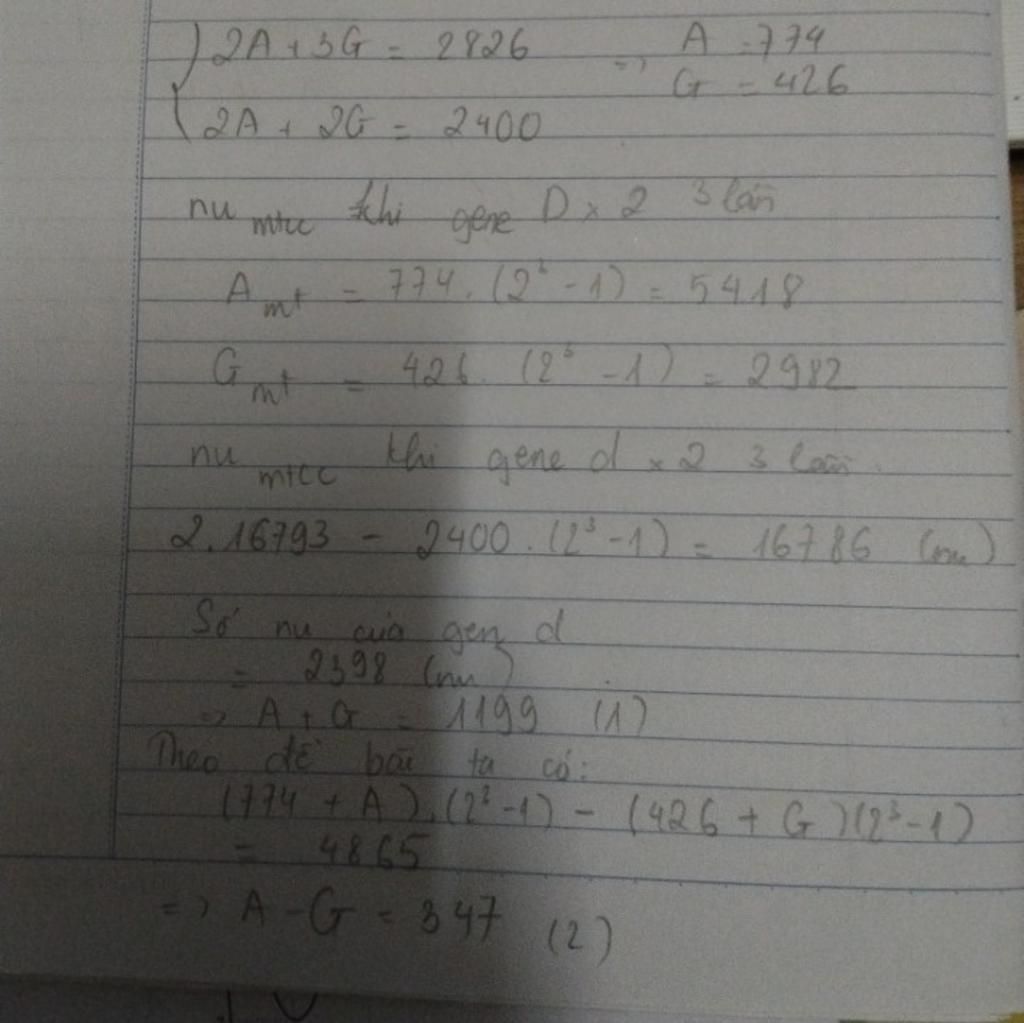 2A + 3G = 2826 => A = 774
G = 426
2A + 2G = 2400
nu mtcc khi gene D x 2 3 lần
A mt = 774. (2³ - 1) = 5418
G mt = 426. (2³ - 1) = 2982
nu mtcc khi gene d x 2 3 lần.
2.16793 - 2400.(2³ - 1) = 16786 (nu)
Số nu của gen d
= 2398 (nu)
=> A + G = 1199 (1)
Theo đề bài ta có:
(774 + A).(2³ - 1) - (426 + G)(2³ - 1)
= 4865
=> A - G = 347 (2)